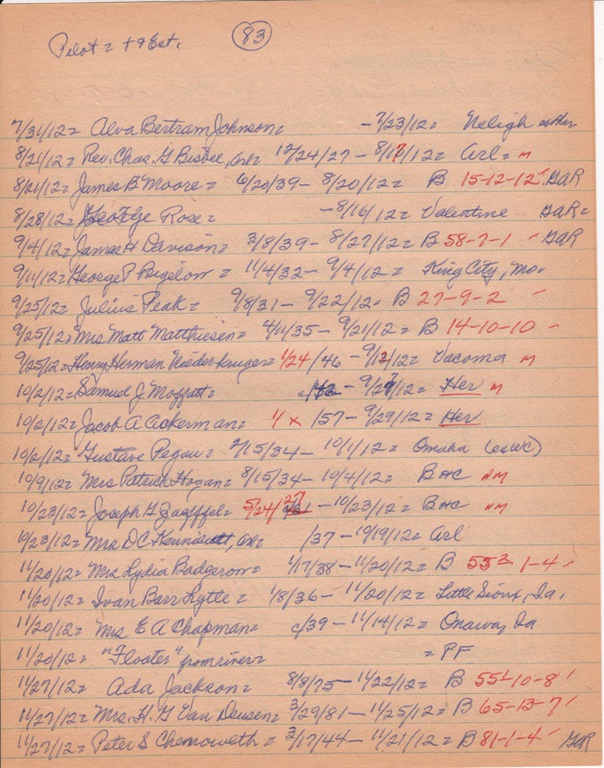 Pilot = + & Est. 83
7/31/12 = Alva Bertram Johnson = - 7/23/12 = Neligh
8/21/12 = Rev. Chas. G. Bisbee, Arl = 12/24/27 - 8/17/12 = Arl = M
8/21/12 = James B Moore = 6/20/39 - 8/20/12 = B 15-12-12 GAR
8/28/12 = George Rose = - 8/16/12 = Valentine GAR =
9/4/12 = James H Davison = 3/8/39 - 8/27/12 = B 58-7-1 GAR
9/11/12 = George P Bigelow = 11/4/32 - 9/4/12 = King City, Mo.
9/25/12 = Julius Peak = 9/8/31 - 9/22/12 = B 27-9-2
9/25/12 = Mrs Matt Matthiesen = 4/11/35 - 9/21/12 = B 14-10-10
9/25/12 = Henry Herman Niederkruger = 1/24/46 - 9/12/12 = Vacoma M
10/2/12 = Samuel J Moffatt = - 9/27/12 = Her M
10/2/12 = Jacob A Ackerman = 4 x /57 - 9/29/12 = Her
10/2/12 = Gustave Pegau = 2/15/34 - 10/1/12 = Omaha
10/9/12 = Mrs Patrick Hogan = 8/15/34 - 10/4/12 = B HC NM
10/23/12 = Joseph G = 5/24/27 - 10/23/12 = B HC NM
10/23/12 = Mrs D C /37 - 10/19/12 = Arl
11/20/12 = Mrs Lydia Badgerow = 4/17/38 - 11/20/12 = B 55 1-4
11/20/12 = Ivan Barr Lytte = 1/8/36 - 11/20/12 = Little Sioux, Ia.
11/20/12 = Mrs E A Chapman = c/39 - 11/14/12 = Onawa, Ia
11/20/12 = "Floater" from river = = PF
11/27/12 = Ada Jackson = 8/8/75 - 11/22/12 = B 55 -10-8
11/27/12 = Mrs. H. G Van Deusen = 3/29/81 - 11/25/12 = B 65-13-7
11/27/12 = Peter S Chenoweth = 2/17/44 - 11/21/12 = B 81-1-4 GAR